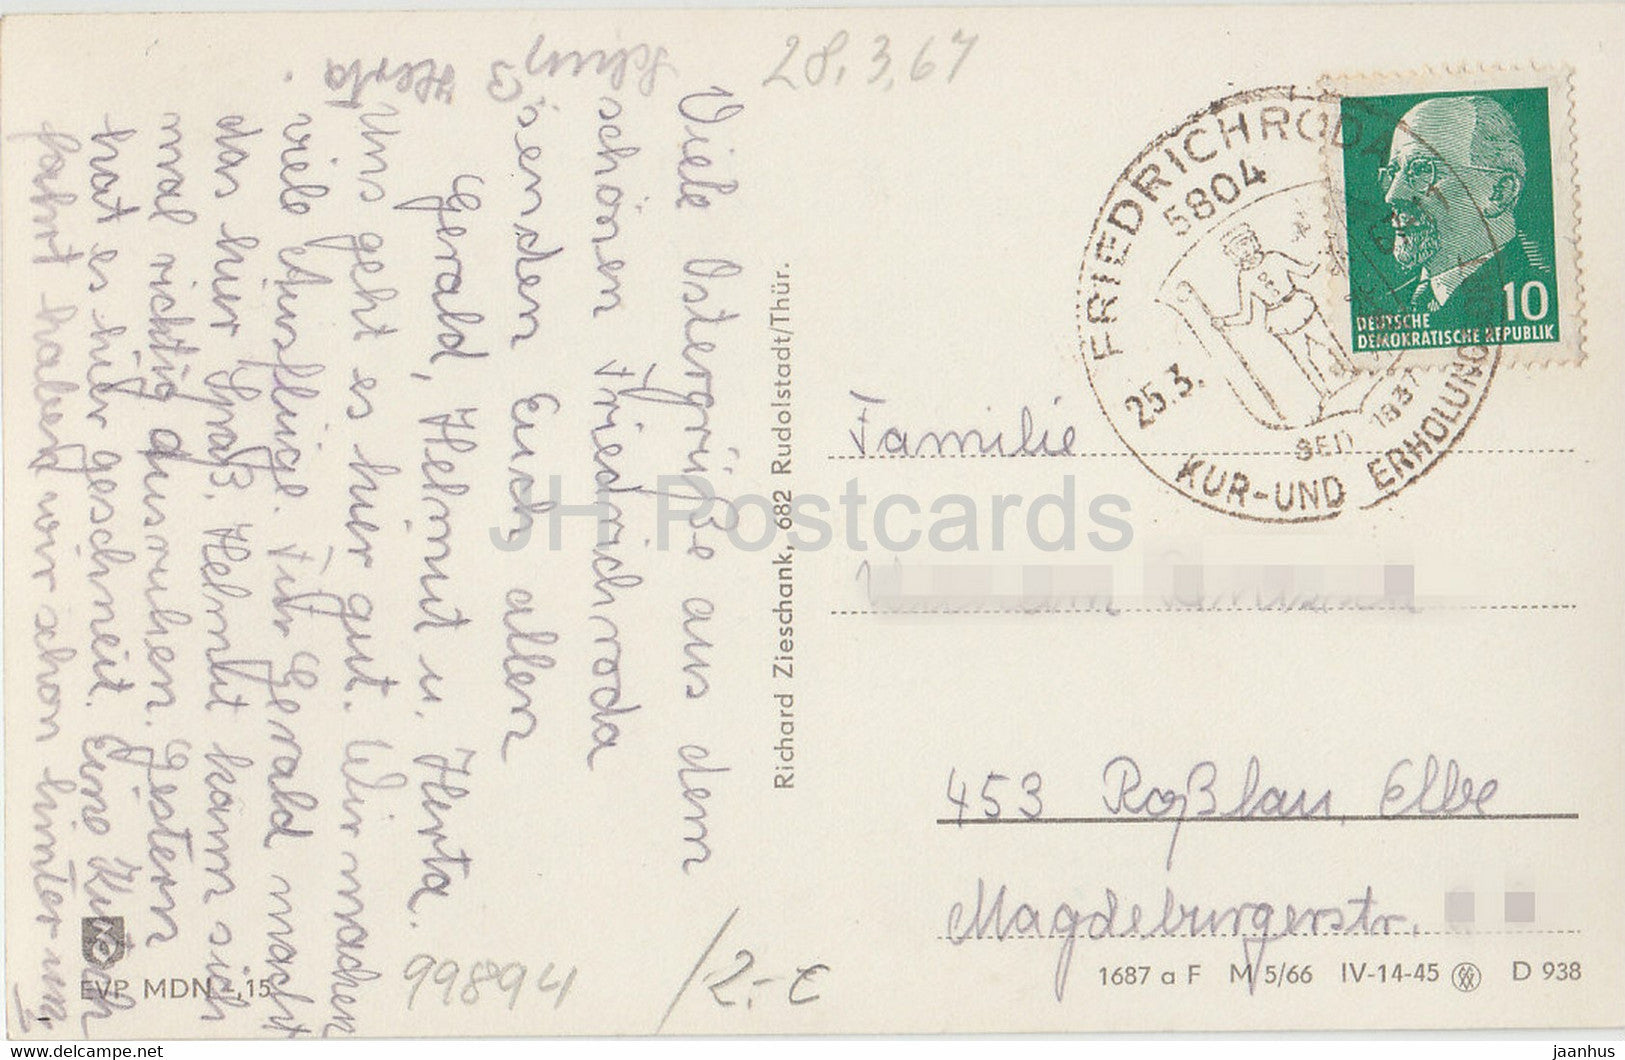 28.3.67
Viele Ostergrüße aus dem
schönen Friedrichroda
senden Euch allen
Gerald, Helmut u. Herta.
Uns geht es hier gut. Wir machen
viele Ausflüge. Für Gerald macht
das hier Spaß. Helmut kann sich
mal richtig ausruhen. Gestern
hat es hier geschneit. Eine
fahrt haben wir schon hinter uns
Herta
Richard Zieschank, 682 Rudolstadt/Thür.
EVP MDN -,15
99894
/2.-€
FRIEDRICHRODA
5804
25.3.
SEIT 1837
KUR-UND ERHOLUNG
10
DEUTSCHE
DEMOKRATISCHE REPUBLIK
Familie
453 Roßlau, Elbe
Magdeburgerstr.
1687 a F M 5/66 IV-14-45 D 938
JH Postcards
www.delcampe.net
jaanhus